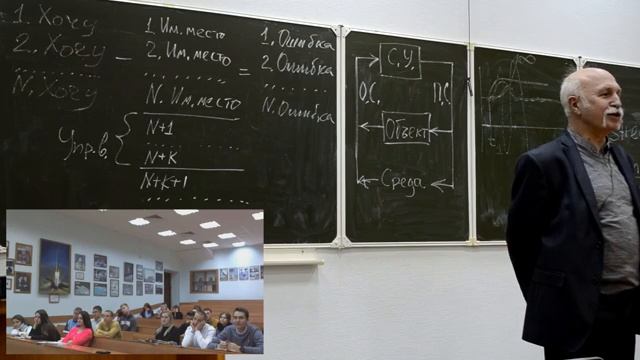 1. Хочу
2. Хочу –
N. Хочу
1 Им. место
2. Им, место =
N. Им. место
Упр.в. { N+1
N+K
N+K+1
1. Ошибка
2. Ошибка
N. Ошибка
С.У.
О.С. П.С.
Объект
Среда